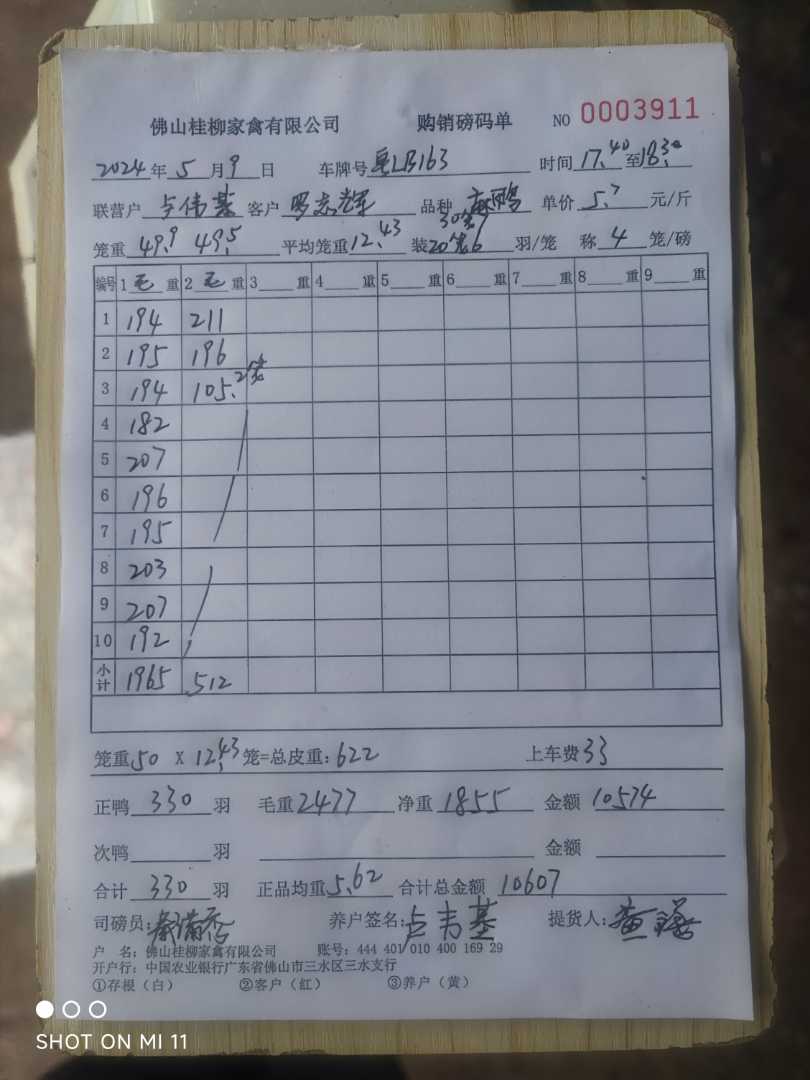 佛山桂柳家禽有限公司 购销磅码单 NO 0003911
2024年5月9日 车牌号粤LB163 时间17.40至18.30
联营户卢伟基 客户罗志辉 品种 单价5.7元/斤
笼重49.9 49.5 平均笼重12.43 装30笼7 20笼6羽/笼 称4笼/磅
编号 1毛重 2毛重 3重 4重 5重 6重 7重 8重 9重
1 194 211
2 195 196
3 194 105.2笼
4 182
5 207
6 196
7 195
8 203
9 207
10 192
小计 1965 512
笼重50 X 12.43笼=总皮重:622 上车费33
正鸭330羽 毛重2477 净重1855 金额10574
次鸭 羽 金额
合计330羽 正品均重5.62 合计总金额10607
司磅员: 养户签名:卢韦基 提货人:
户 名:佛山桂柳家禽有限公司 账号:444 401 010 400 169 29
开户行:中国农业银行广东省佛山市三水区三水支行
①存根(白) ②客户(红) ③养户(黄)
SHOT ON MI 11